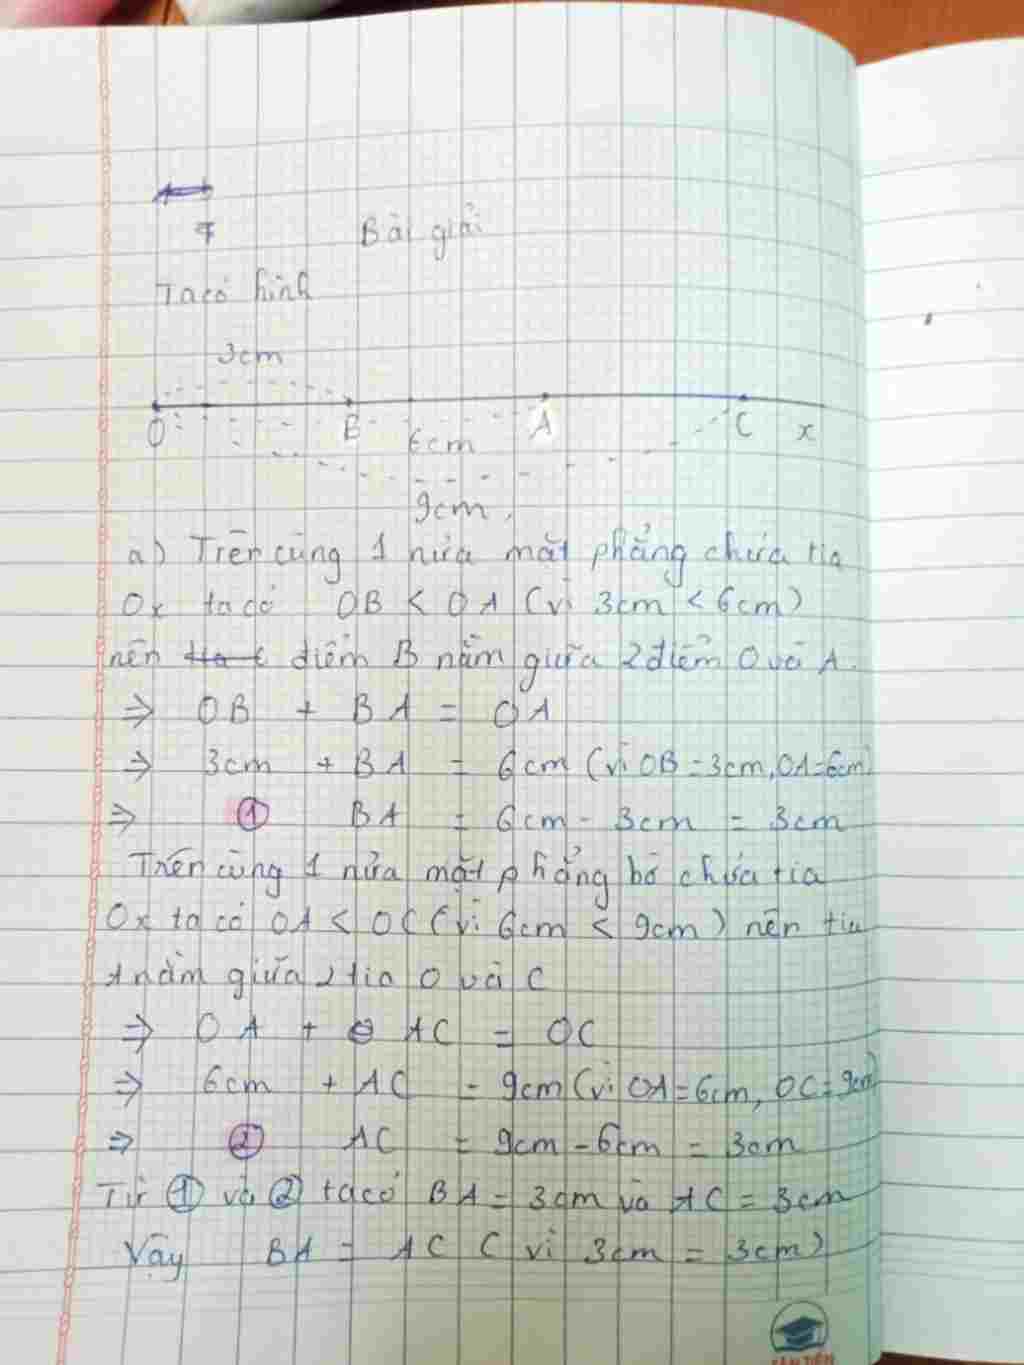 Bài giải
Ta có hình
3cm
O B A C x
6cm
9cm
a) Trên cùng 1 nửa mặt phẳng chứa tia
Ox ta có OB < OA (vì 3cm < 6cm)
nên điểm B nằm giữa 2 điểm O và A.
⇒ OB + BA = OA
⇒ 3cm + BA = 6cm (vì OB = 3cm, OA = 6cm)
⇒ ① BA = 6cm - 3cm = 3cm
Trên cùng 1 nửa mặt phẳng bờ chứa tia
Ox ta có OA < OC (vì 6cm < 9cm) nên tia
A nằm giữa 2 tia O và C
⇒ OA + AC = OC
⇒ 6cm + AC = 9cm (vì OA = 6cm, OC = 9cm)
⇒ ② AC = 9cm - 6cm = 3cm
Từ ① và ② ta có BA = 3cm và AC = 3cm
Vậy BA = AC (vì 3cm = 3cm)